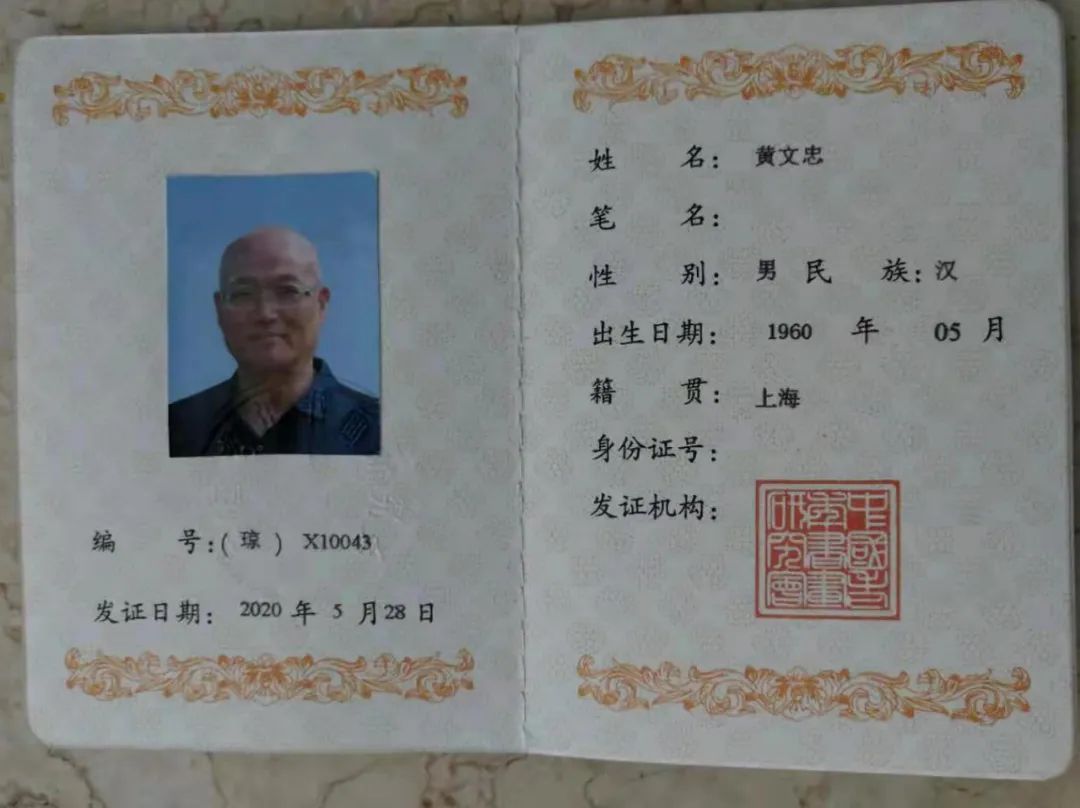 编 号:(琼) X10043
发证日期: 2020 年 5 月 28 日
姓 名: 黄文忠
笔 名:
性 别: 男 民 族: 汉
出生日期: 1960 年 05 月
籍 贯: 上海
身份证号:
发证机构:
中國老年書畫研究會